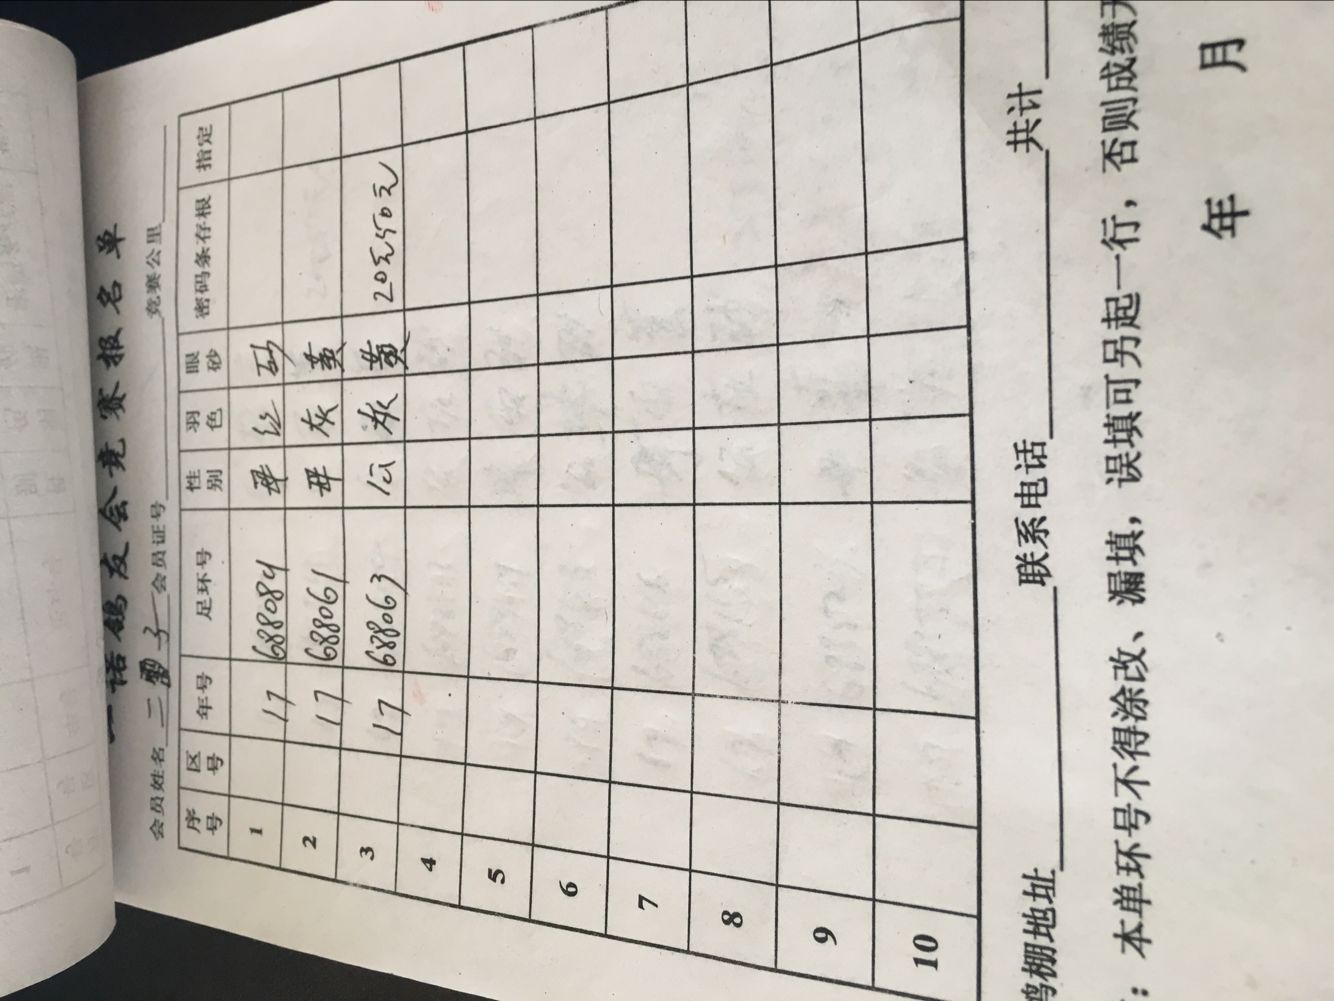 一诺鸽友会竞赛报名单
会员姓名 二 子 会员证号 竞赛公里
序号 区号 年号 足环号 性别 羽色 眼砂 密码条存根 指定
1 17 688084 母 红 砂
2 17 688061 母 灰 黄
3 17 688063 公 灰 黄 20元50元
4
5
6
7
8
9
10
鸽棚地址 联系电话 共计
：本单环号不得涂改、漏填，误填可另起一行，否则成绩无
年 月